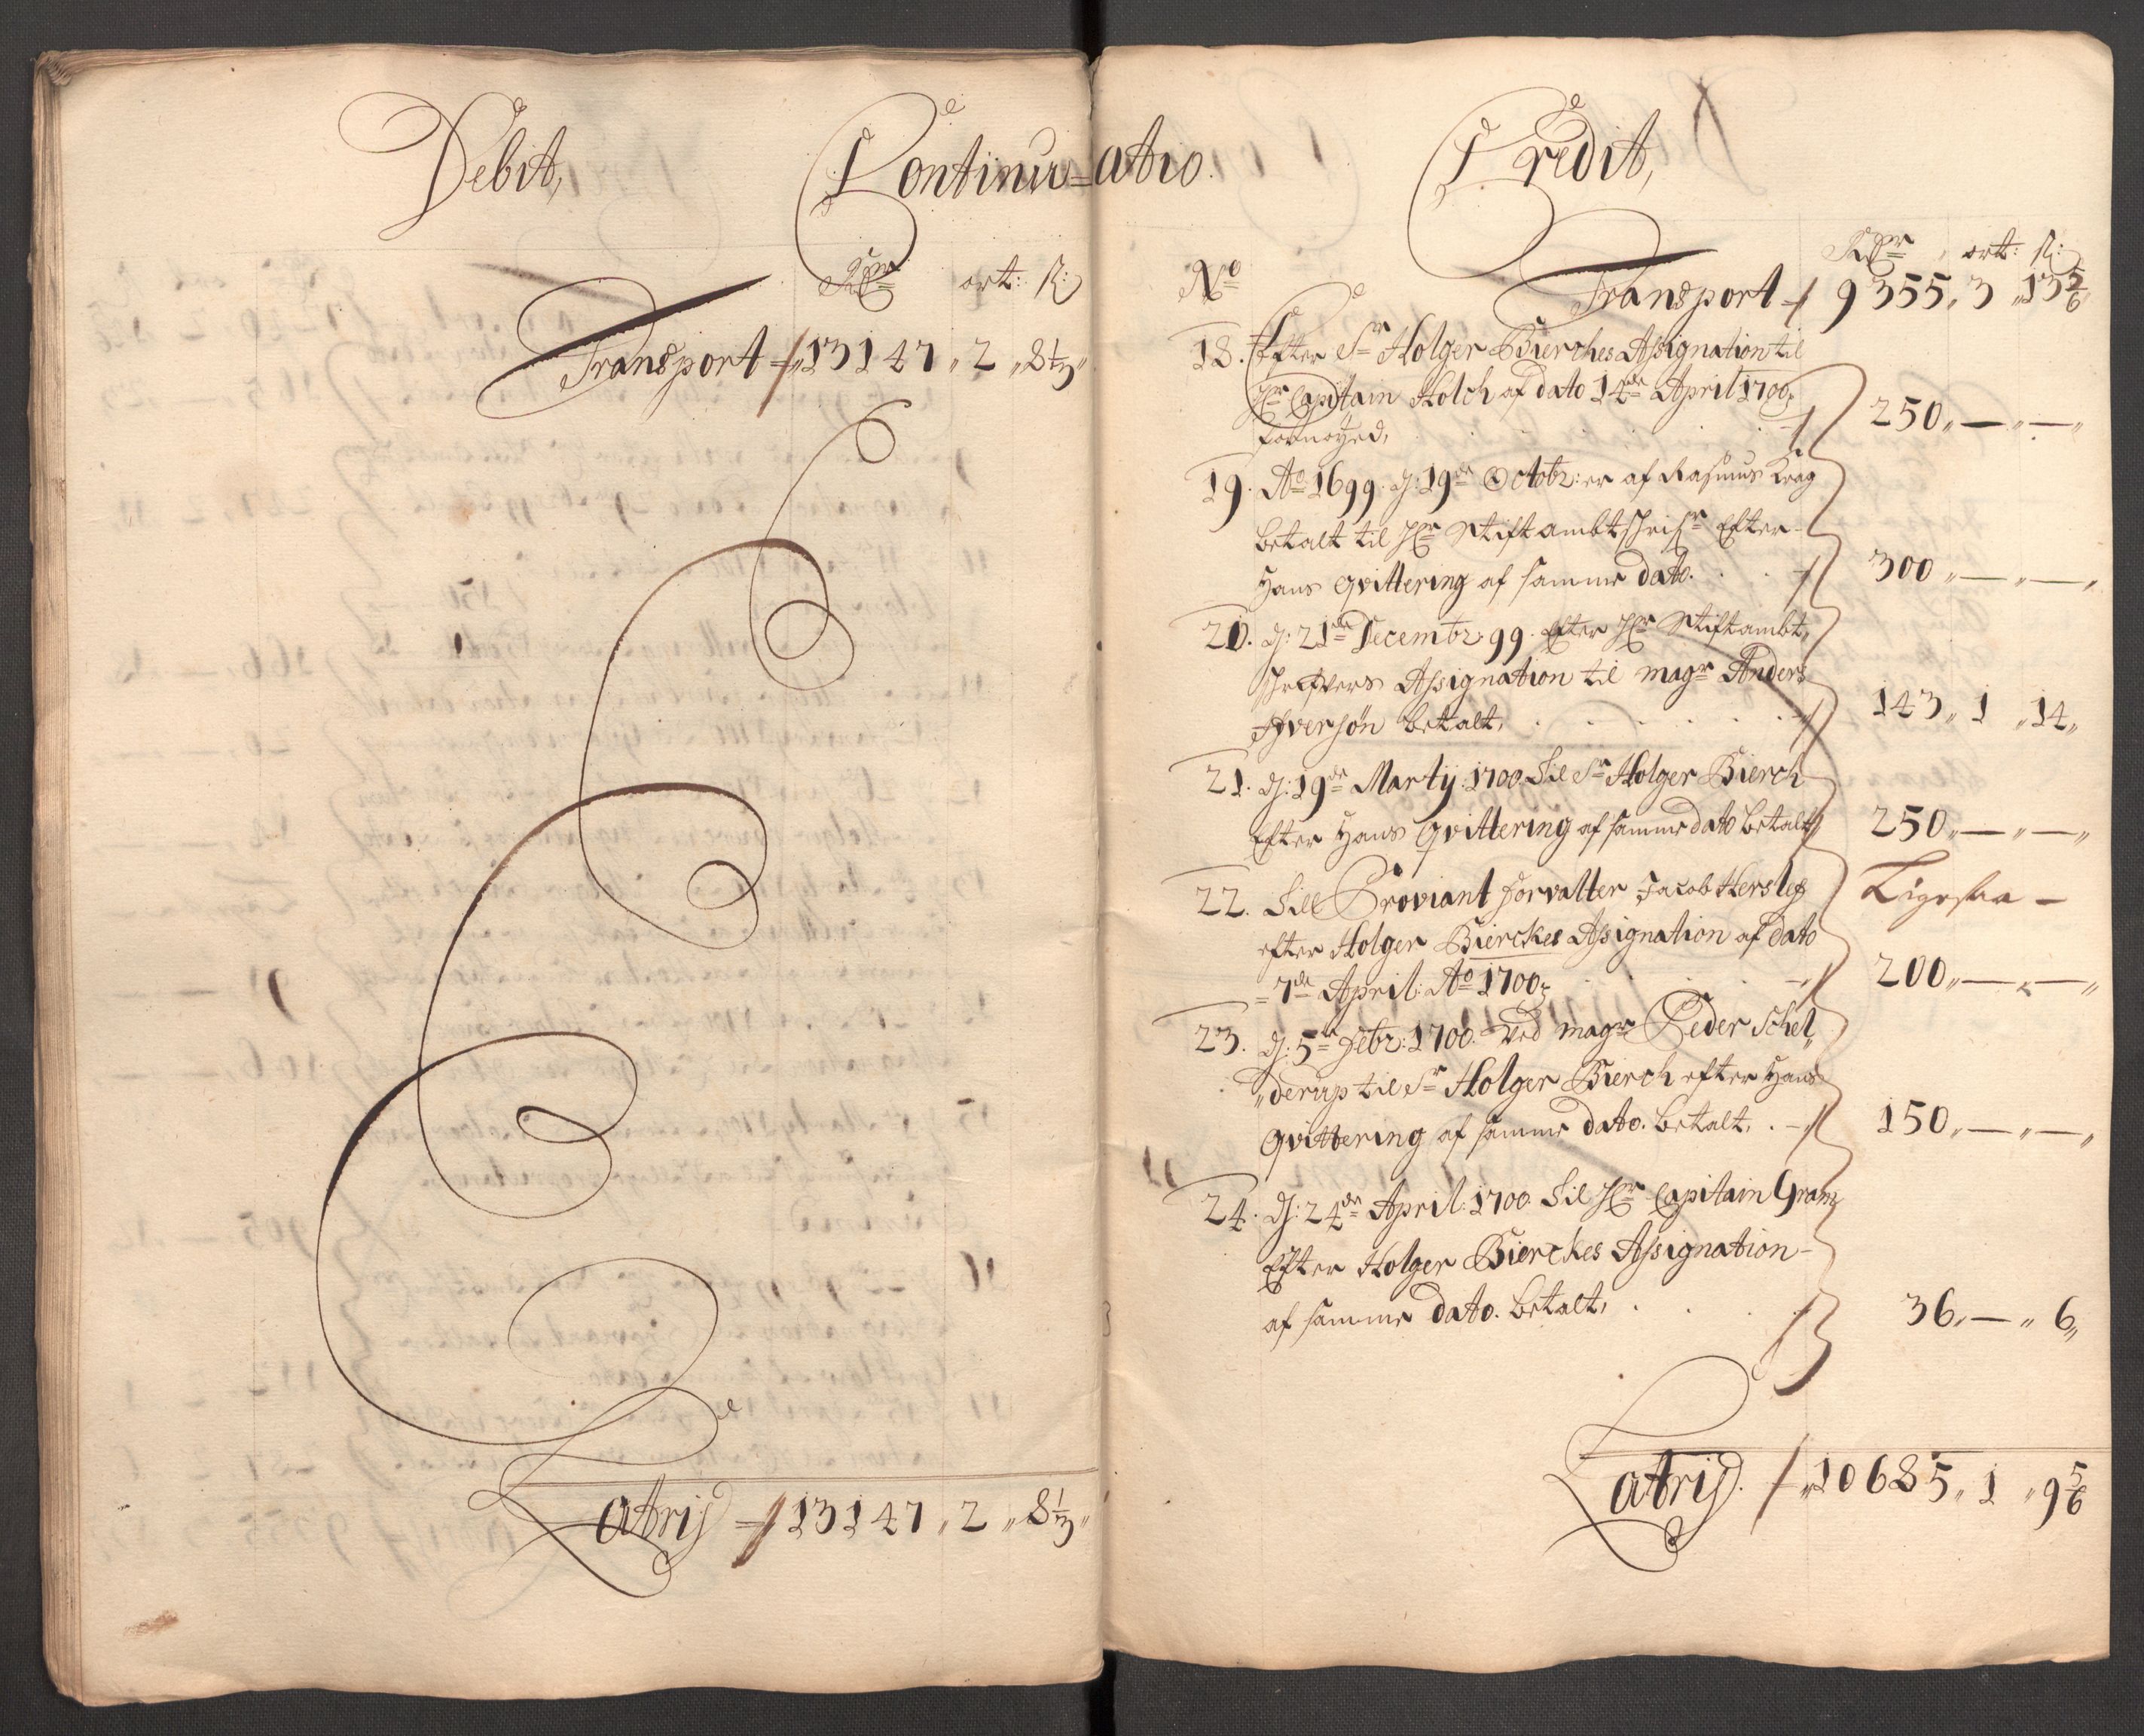 Debit,
Continu=atio.
Rdr ort: ß:
Transport - 13147 " 2 " 8 1/3 "
Latris - 13147 " 2 " 8 1/3 "
Credit,
No Rdr ort: ß:
Transport - 9355 " 3 " 13 5/6
18. Efter Sr Holger Bierches Assignation til
Hr Capitain Holch af dato 14de April 1700,
fornøyed, 250 " — " — "
19. Ao 1699. d: 19de Octobr: er af Rasmus Krag
betalt til Hr Stiftambtschrifr Efter-
Hans qvittering af samme dato. 300 " — " — "
20. d: 21de Decembr. 99. Efter Hr Stiftambt,,
schrifvers Assignation til magr Anders
Iversøn betalt, 143 " 1 " 14 "
21. d: 19de Martÿ. 1700. Til Sr Holger Bierch
Efter Hans Qvittering af samme dato betalt 250 " — " — "
22. Till Proviant Forvalter Jacob Herslef Ligesaa -
efter Holger Bierckes Assignation af dato
= 7de April: Ao 1700, 200 " — " — "
23. d: 5te Febr: 1700. Ved magr Peder Schel,,
,,derup til Sr Holger Bierch efter Hans
Qvittering af samme dato. betalt, 150 " — " — "
24. d: 24de April: 1700. Til Hr Capitain Gram,
Efter Holger Bierckes Assignation-
af samme dato. betalt, 36 " — " 6 "
Latris. - 10685 " 1 " 9 5/6